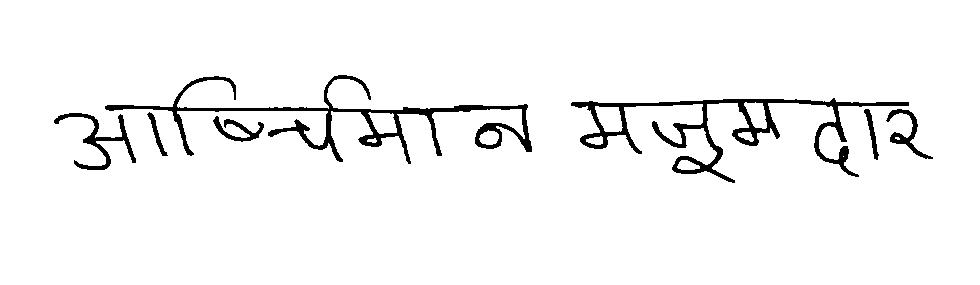 आर्षिचमान मजूमदार